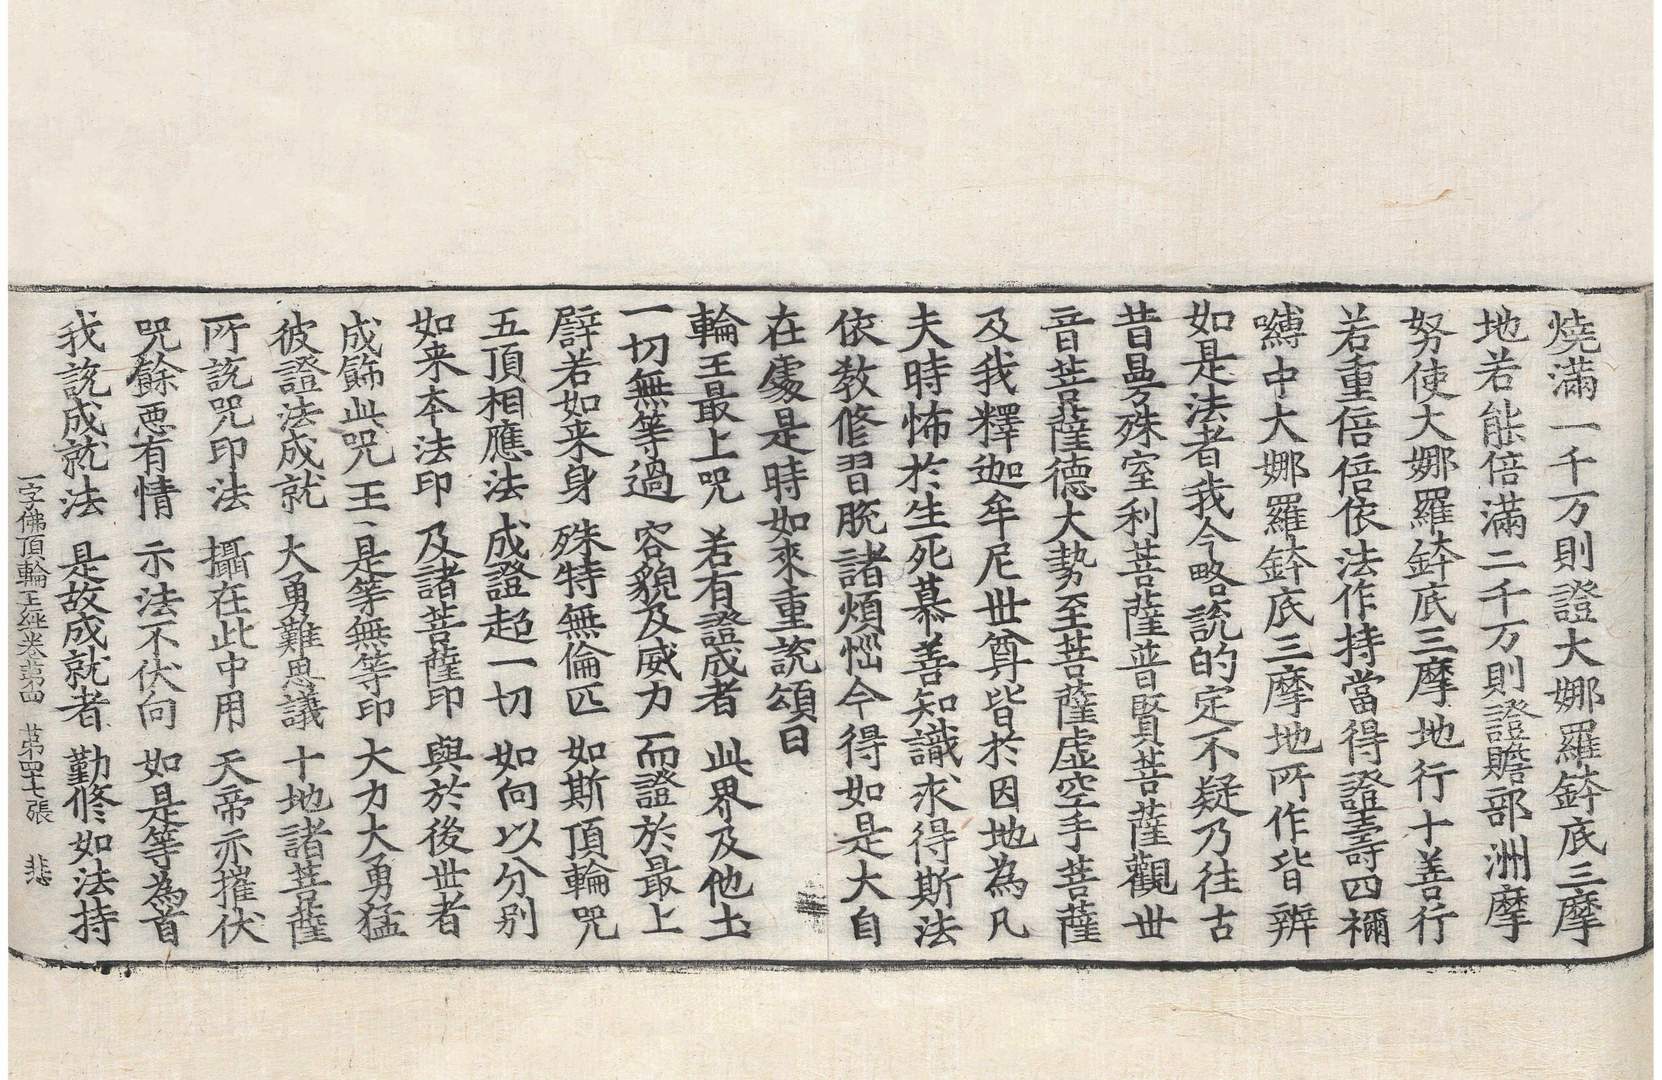 燒滿一千万則證大娜羅鉢底三摩
地若能倍滿二千万則證贍部洲摩
努使大娜羅鉢底三摩地行十善行
若重倍倍依法作持當得證壽四禰
嚩中大娜羅鉢底三摩地所作皆辦
如是法者我今略說的定不疑乃往古
昔曼殊室利菩薩普賢菩薩觀世
音菩薩德大勢至菩薩虛空手菩薩
及我釋迦牟尼世尊皆於因地為凡
夫時怖於生死慕善知識求得斯法
依教修習脫諸煩惱今得如是大自
在處是時如來重說頌曰
輪王最上咒　若有證成者　此界及他土
一切無等過　容貌及威力　而證於最上
辟若如來身　殊特無倫匹　如斯頂輪咒
五頂相應法　成證超一切　如向以分别
如来本法印　及諸菩薩印　與於後世者
成餙此咒王　是等無等印　大力大勇猛
彼證法成就　大勇難思議　十地諸菩薩
所說咒印法　攝在此中用　天帝示摧伏
咒餘惡有情　示法不伏向　如是等為首
我說成就法　是故成就者　勤修如法持
一字佛頂輪王經卷第四　第四十七張　悲